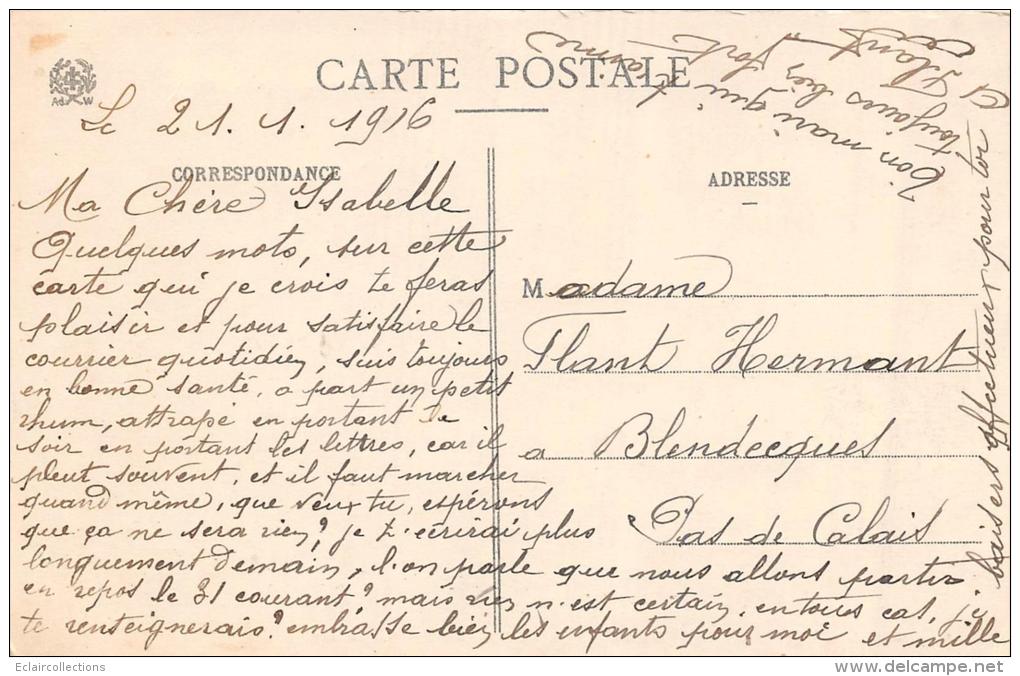 CARTE POSTALE
Ad. W
Le 21.1.1916
CORRESPONDANCE
Ma Chère Isabelle
Quelques mots, sur cette
carte qui je crois te feras
plaisir et pour satisfaire le
courrier quotidien, suis toujours
en bonne santé, a part un petit
rhum, attrapé en portant le
soir en portant les lettres, car il
pleut souvent, et il faut marcher
quand même, que veux tu, espérons
que ça ne sera rien? je t'écrirai plus
longuement demain, l'on parle que nous allons partir
en repos le 31 courant? mais rien n'est certain, en tous cas, je
te renseignerais? embrasse bien les enfants pour moi et mille
baisers affectueux pour toi
bon mari qui t'aime
toujours bien fort
Flant
ADRESSE
Madame
Flant Hermant
a Blendecques
Pas de Calais
Eclaircollections
www.delcampe.net